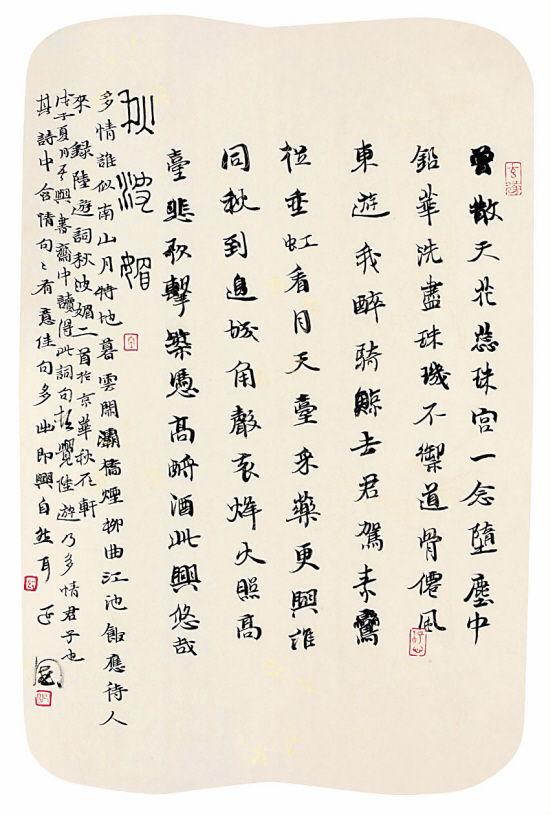 曾散天花蕊珠宮一念墮塵中
鉛華洗盡珠璣不御道骨僊風
東遊我醉騎鯨去君駕素鸞
從垂虹看月天臺采藥更興誰
同秋到邊城角聲哀烽火照高
臺悲歌擊築憑高酹酒此興悠哉
秋波媚
多情誰似南山月特地暮雲開灞橋煙柳曲江池館應待人
來 錄陸遊詞秋波媚二首於京華秋軒
戊子夏月興書齋中讀得此詞句覺陸遊乃多情君子也
其詩中含情句々有意佳句多出即興自然耳